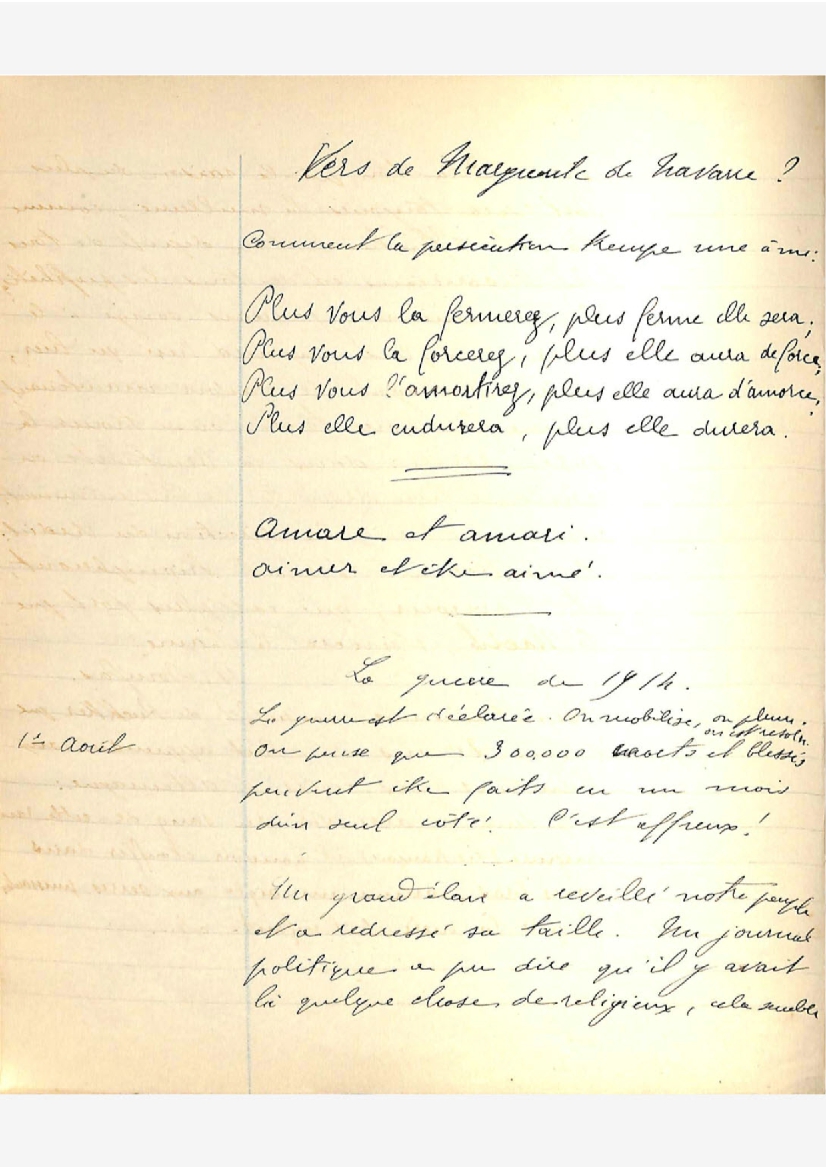 Vers de Marguerite de Navarre ?
Comment la persécution trempe une âme :
Plus vous la fermerez, plus ferme elle sera ;
Plus vous la forcerez, plus elle aura de force,
Plus vous l'amortirez, plus elle aura d'amorce,
Plus elle endurera, plus elle durera.
Amare et amari.
aimer et être aimé.
La guerre de 1914.
La guerre est déclarée. On mobilise, on pleure.
on est résolu.
1er Août
On pense que 300,000 morts et blessés
peuvent être faits en un mois
d'un seul côté. C'est affreux !
Un grand élan a réveillé notre peuple
et a redressé sa taille. Un journal
politique a pu dire qu'il y avait
là quelque chose de religieux, cela semble